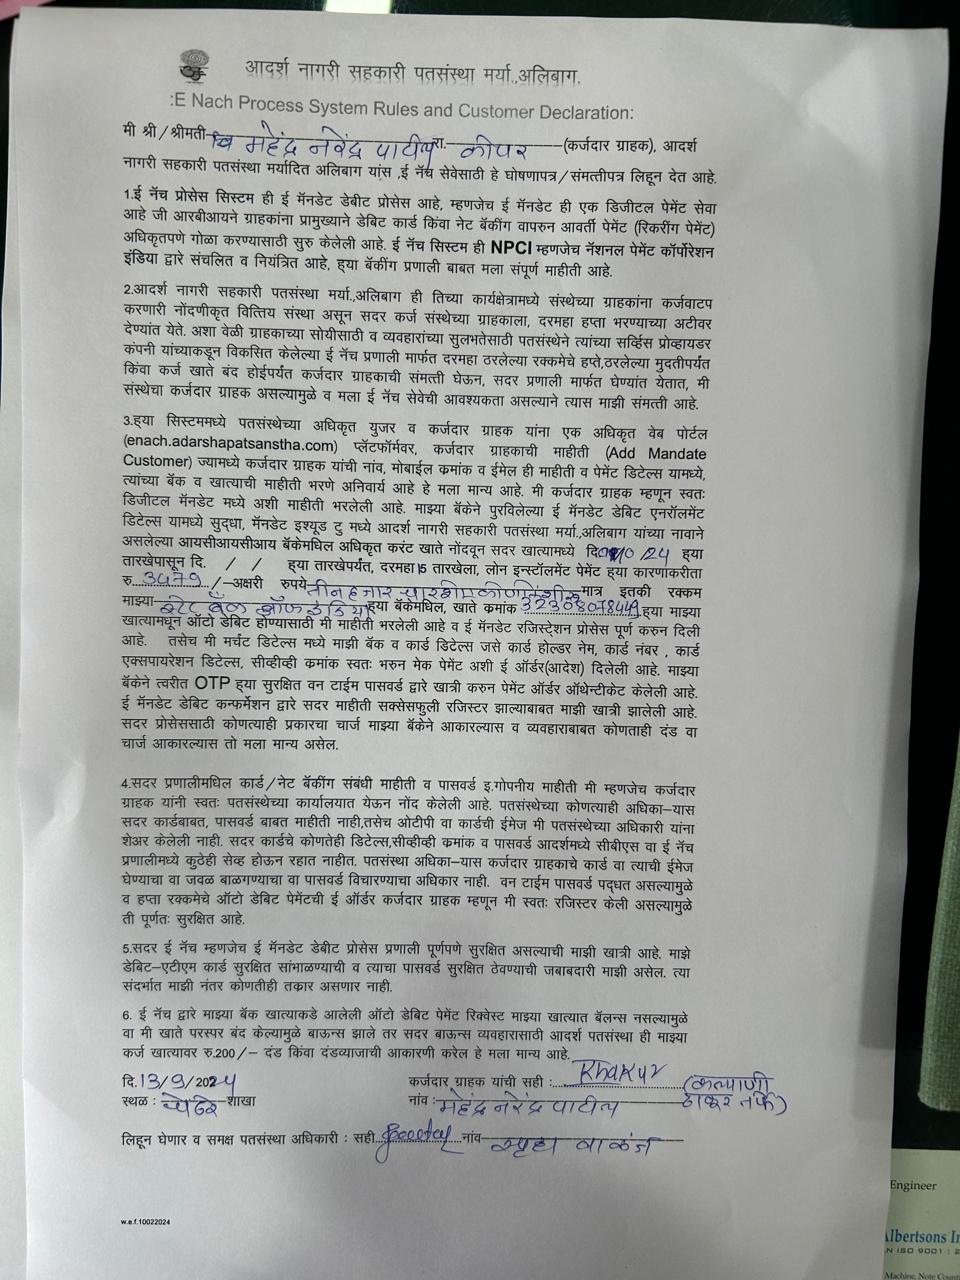 आदर्श नागरी सहकारी पतसंस्था मर्या.,अलिबाग.
:E Nach Process System Rules and Customer Declaration:
मी श्री/श्रीमती महेंद्र नरेंद्र पाटील रा. कोपर (कर्जदार ग्राहक), आदर्श
नागरी सहकारी पतसंस्था मर्यादित अलिबाग यांस ,ई नॅच सेवेसाठी हे घोषणापत्र/संमतीपत्र लिहून देत आहे.
1.ई नॅच प्रोसेस सिस्टिम ही ई मॅनडेट डेबीट प्रोसेस आहे, म्हणजेच ई मॅनडेट ही एक डिजीटल पेमेंट सेवा
आहे जी आरबीआयने ग्राहकांना प्रामुख्याने डेबिट कार्ड किंवा नेट बॅकींग वापरुन आवर्ती पेमेंट (रिकरींग पेमेंट)
अधिकृतपणे गोळा करण्यासाठी सुरु केलेली आहे. ई नॅच सिस्टम ही NPCI म्हणजेच नॅशनल पेमेंट कॉर्पोरेशन
इंडिया द्वारे संचलित व नियंत्रित आहे, हया बॅकींग प्रणाली बाबत मला संपूर्ण माहीती आहे.
2.आदर्श नागरी सहकारी पतसंस्था मर्या.,अलिबाग ही तिच्या कार्यक्षेत्रामध्ये संस्थेच्या ग्राहकांना कर्जवाटप
करणारी नोंदणीकृत वित्तिय संस्था असून सदर कर्ज संस्थेच्या ग्राहकाला, दरमहा हप्ता भरण्याच्या अटीवर
देण्यांत येते. अशा वेळी ग्राहकाच्या सोयीसाठी व व्यवहारांच्या सुलभतेसाठी पतसंस्थेने त्यांच्या सर्व्हिस प्रोव्हायडर
कंपनी यांच्याकडून विकसित केलेल्या ई नॅच प्रणाली मार्फत दरमहा ठरलेल्या रक्कमेचे हप्ते,ठरलेल्या मुदतीपर्यंत
किंवा कर्ज खाते बंद होईपर्यंत कर्जदार ग्राहकाची संमत्ती घेऊन, सदर प्रणाली मार्फत घेण्यांत येतात, मी
संस्थेचा कर्जदार ग्राहक असल्यामुळे व मला ई नॅच सेवेची आवश्यकता असल्याने त्यास माझी संमत्ती आहे.
3.हया सिस्टममध्ये पतसंस्थेच्या अधिकृत युजर व कर्जदार ग्राहक यांना एक अधिकृत वेब पोर्टल
(enach.adarshapatsanstha.com) प्लॅटफॉर्मवर, कर्जदार ग्राहकाची माहीती (Add Mandate
Customer) ज्यामध्ये कर्जदार ग्राहक यांची नांव, मोबाईल क्रमांक व ईमेल ही माहीती व पेमेंट डिटेल्स यामध्ये,
त्यांच्या बॅक व खात्याची माहीती भरणे अनिवार्य आहे हे मला मान्य आहे. मी कर्जदार ग्राहक म्हणून स्वतः
डिजीटल मॅनडेट मध्ये अशी माहीती भरलेली आहे. माझ्या बॅकेने पुरविलेल्या ई मॅनडेट डेबिट एनरॉलमेंट
डिटेल्स यामध्ये सुद्धा, मॅनडेट इश्यूड टु मध्ये आदर्श नागरी सहकारी पतसंस्था मर्या.,अलिबाग यांच्या नावाने
असलेल्या आयसीआयसीआय बॅकेमधिल अधिकृत करंट खाते नोंदवून सदर खात्यामध्ये दि /10 /24 हया
तारखेपासून दि. / / हया तारखेपर्यंत, दरमहा 15 तारखेला, लोन इन्स्टॉलमेंट पेमेंट हया कारणाकरीता
रु 3479/-अक्षरी रुपये तीन हजार चारशे एकोणऐंशी मात्र इतकी रक्कम
माझ्या स्टेट बँक ऑफ इंडिया हया बॅकेमधिल, खाते क्रमांक 32308078449 हया माझ्या
खात्यामधून ऑटो डेबिट होण्यासाठी मी माहीती भरलेली आहे व ई मॅनडेट रजिस्ट्रेशन प्रोसेस पूर्ण करुन दिली
आहे. तसेच मी मर्चंट डिटेल्स मध्ये माझी बॅक व कार्ड डिटेल्स जसे कार्ड होल्डर नेम, कार्ड नंबर , कार्ड
एक्सपायरेशन डिटेल्स, सीव्हीव्ही क्रमांक स्वतः भरुन मेक पेमेंट अशी ई ऑर्डर(आदेश) दिलेली आहे. माझ्या
बॅकेने त्वरीत OTP हया सुरक्षित वन टाईम पासवर्ड द्वारे खात्री करुन पेमेंट ऑर्डर ऑथेन्टीकेट केलेली आहे.
ई मॅनडेट डेबिट कन्फर्मेशन द्वारे सदर माहीती सक्सेसफुली रजिस्टर झाल्याबाबत माझी खात्री झालेली आहे.
सदर प्रोसेससाठी कोणत्याही प्रकारचा चार्ज माझ्या बॅकेने आकारल्यास व व्यवहाराबाबत कोणताही दंड वा
चार्ज आकारल्यास तो मला मान्य असेल.
4.सदर प्रणालीमधिल कार्ड/नेट बॅकींग संबंधी माहीती व पासवर्ड इ.गोपनीय माहीती मी म्हणजेच कर्जदार
ग्राहक यांनी स्वतः पतसंस्थेच्या कार्यालयात येऊन नोंद केलेली आहे. पतसंस्थेच्या कोणत्याही अधिका-यास
सदर कार्डबाबत, पासवर्ड बाबत माहीती नाही,तसेच ओटीपी वा कार्डची ईमेज मी पतसंस्थेच्या अधिकारी यांना
शेअर केलेली नाही. सदर कार्डचे कोणतेही डिटेल्स,सीव्हीव्ही क्रमांक व पासवर्ड आदर्शमध्ये सीबीएस वा ई नॅच
प्रणालीमध्ये कुठेही सेव्ह होऊन रहात नाहीत. पतसंस्था अधिका-यास कर्जदार ग्राहकाचे कार्ड वा त्याची ईमेज
घेण्याचा वा जवळ बाळगण्याचा वा पासवर्ड विचारण्याचा अधिकार नाही. वन टाईम पासवर्ड पद्धत असल्यामुळे
व हप्ता रक्कमेचे ऑटो डेबिट पेमेंटची ई ऑर्डर कर्जदार ग्राहक म्हणून मी स्वतः रजिस्टर केली असल्यामुळे
ती पूर्णतः सुरक्षित आहे.
5.सदर ई नॅच म्हणजेच ई मॅनडेट डेबीट प्रोसेस प्रणाली पूर्णपणे सुरक्षित असल्याची माझी खात्री आहे. माझे
डेबिट-एटीएम कार्ड सुरक्षित सांभाळण्याची व त्याचा पासवर्ड सुरक्षित ठेवण्याची जबाबदारी माझी असेल. त्या
संदर्भात माझी नंतर कोणतीही तक्रार असणार नाही.
6. ई नॅच द्वारे माझ्या बॅक खात्याकडे आलेली ऑटो डेबिट पेमेंट रिक्वेस्ट माझ्या खात्यात बॅलन्स नसल्यामुळे
वा मी खाते परस्पर बंद केल्यामुळे बाऊन्स झाले तर सदर बाऊन्स व्यवहारासाठी आदर्श पतसंस्था ही माझ्या
कर्ज खात्यावर रु.200/- दंड किंवा दंडव्याजाची आकारणी करेल हे मला मान्य आहे.
दि.13/9/2024 कर्जदार ग्राहक यांची सही : Kthakur (कल्याणी
स्थळ : चोंढी शाखा नांव : महेंद्र नरेंद्र पाटील ठाकूर तर्फे)
लिहून घेणार व समक्ष पतसंस्था अधिकारी : सही नांव स्पृहा वाळंज
w.e.f.10022024
Engineer
Albertsons In
N ISO 9001 : 2
Machine, Note Coun